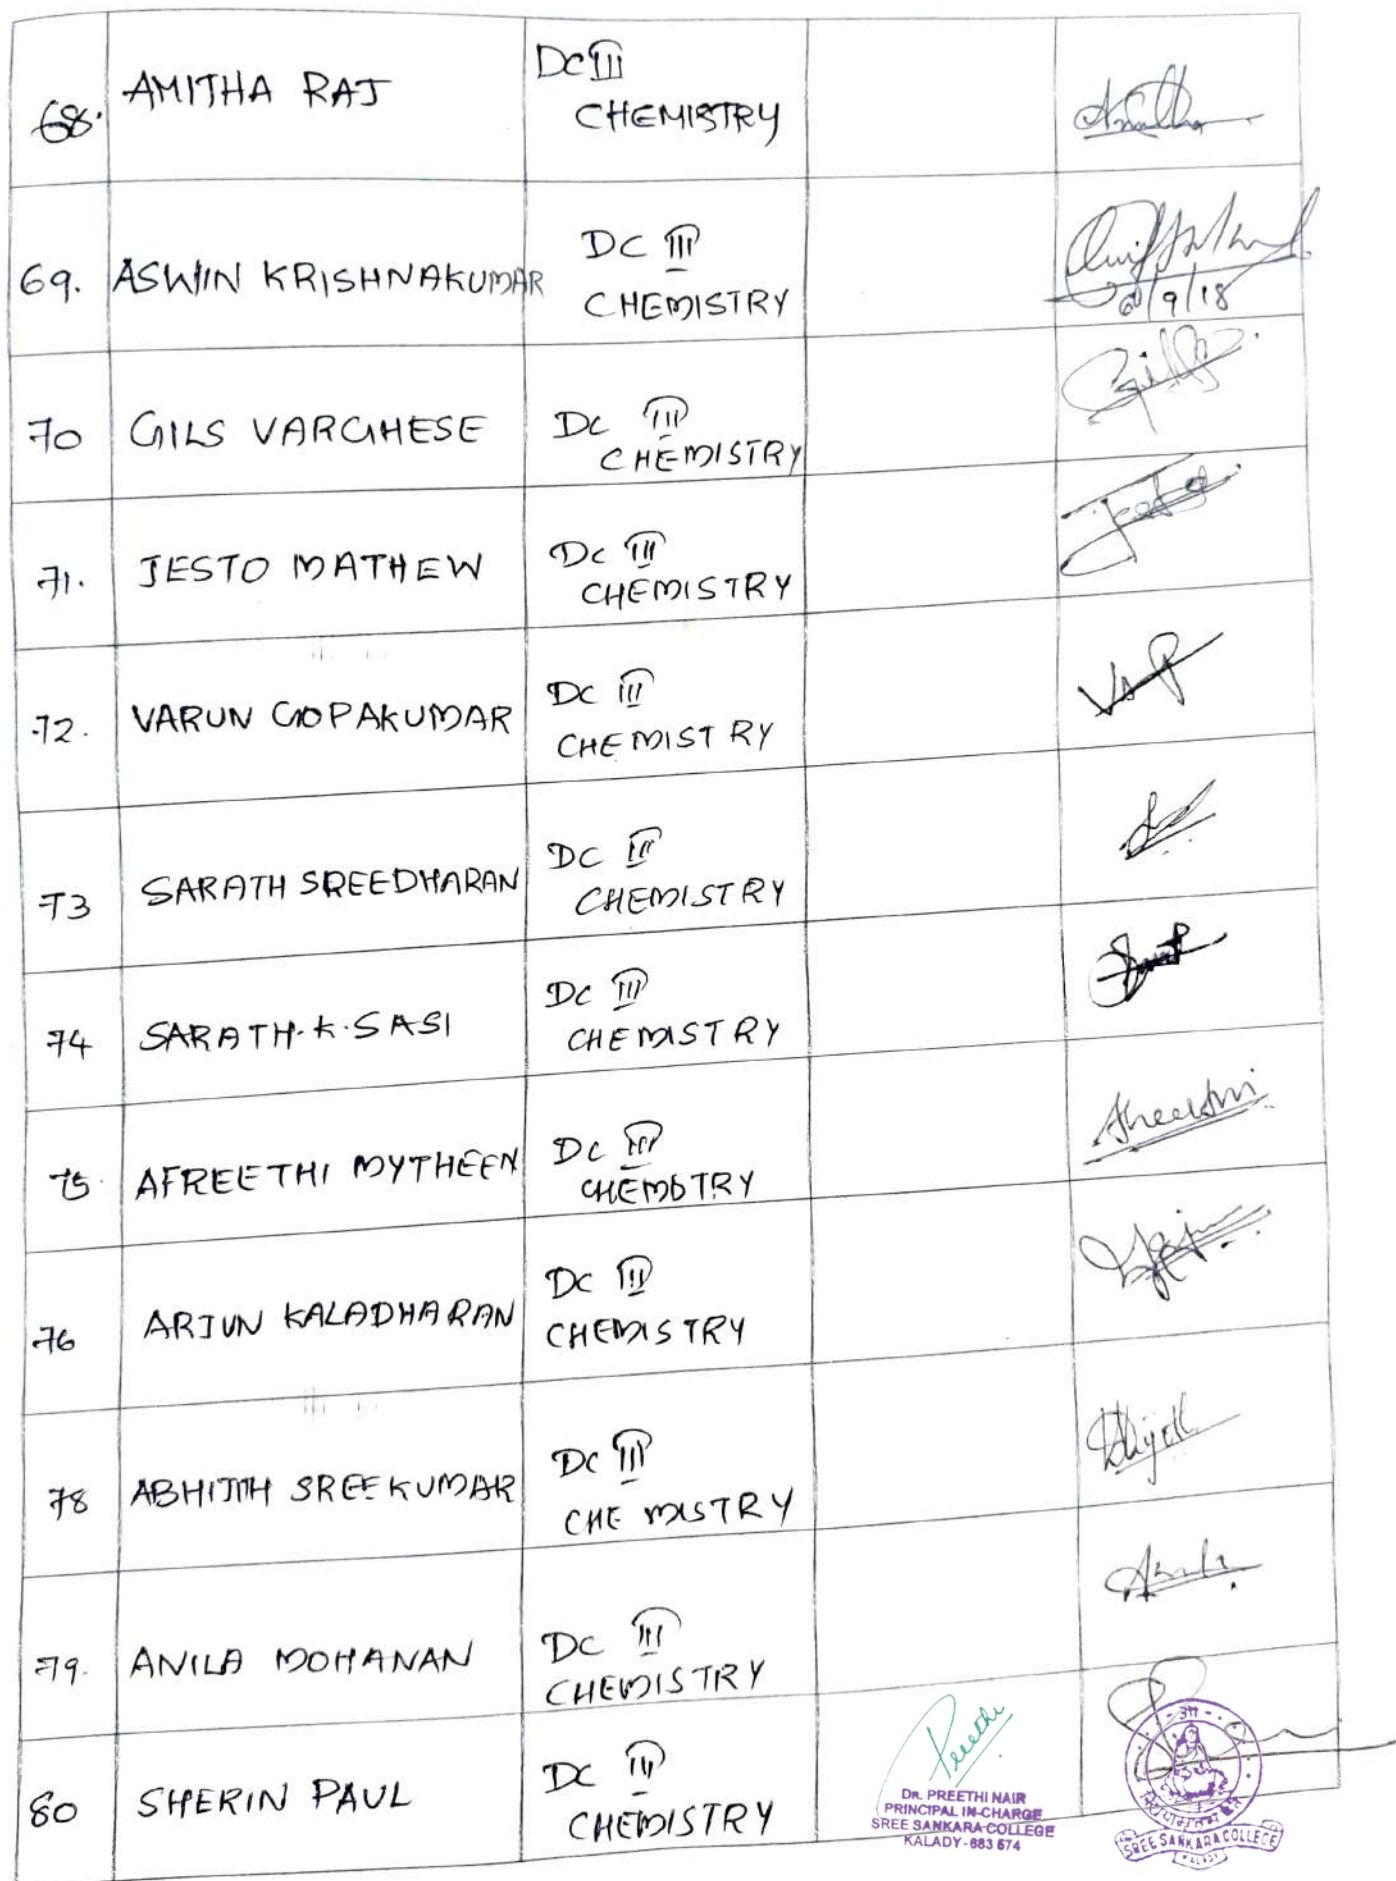 68. AMITHA RAJ DC III
CHEMISTRY Amitha
69. ASWIN KRISHNAKUMAR DC III
CHEMISTRY
6/9/18
70 GILS VARGHESE DC III
CHEMISTRY
71. JESTO MATHEW DC III
CHEMISTRY
72. VARUN GOPAKUMAR DC III
CHEMISTRY
73 SARATH SREEDHARAN DC III
CHEMISTRY
74 SARATH.K.SASI DC III
CHEMISTRY
75. AFREETHI MYTHEEN DC III
CHEMISTRY
76 ARJUN KALADHARAN DC III
CHEMISTRY
78 ABHIJITH SREEKUMAR DC III
CHEMISTRY
79. ANILA MOHANAN DC III
CHEMISTRY
80 SHERIN PAUL DC III
CHEMISTRY
Preethi
DR. PREETHI NAIR
PRINCIPAL IN-CHARGE
SREE SANKARA COLLEGE
KALADY-683 574
SREE SANKARA COLLEGE
KALADY